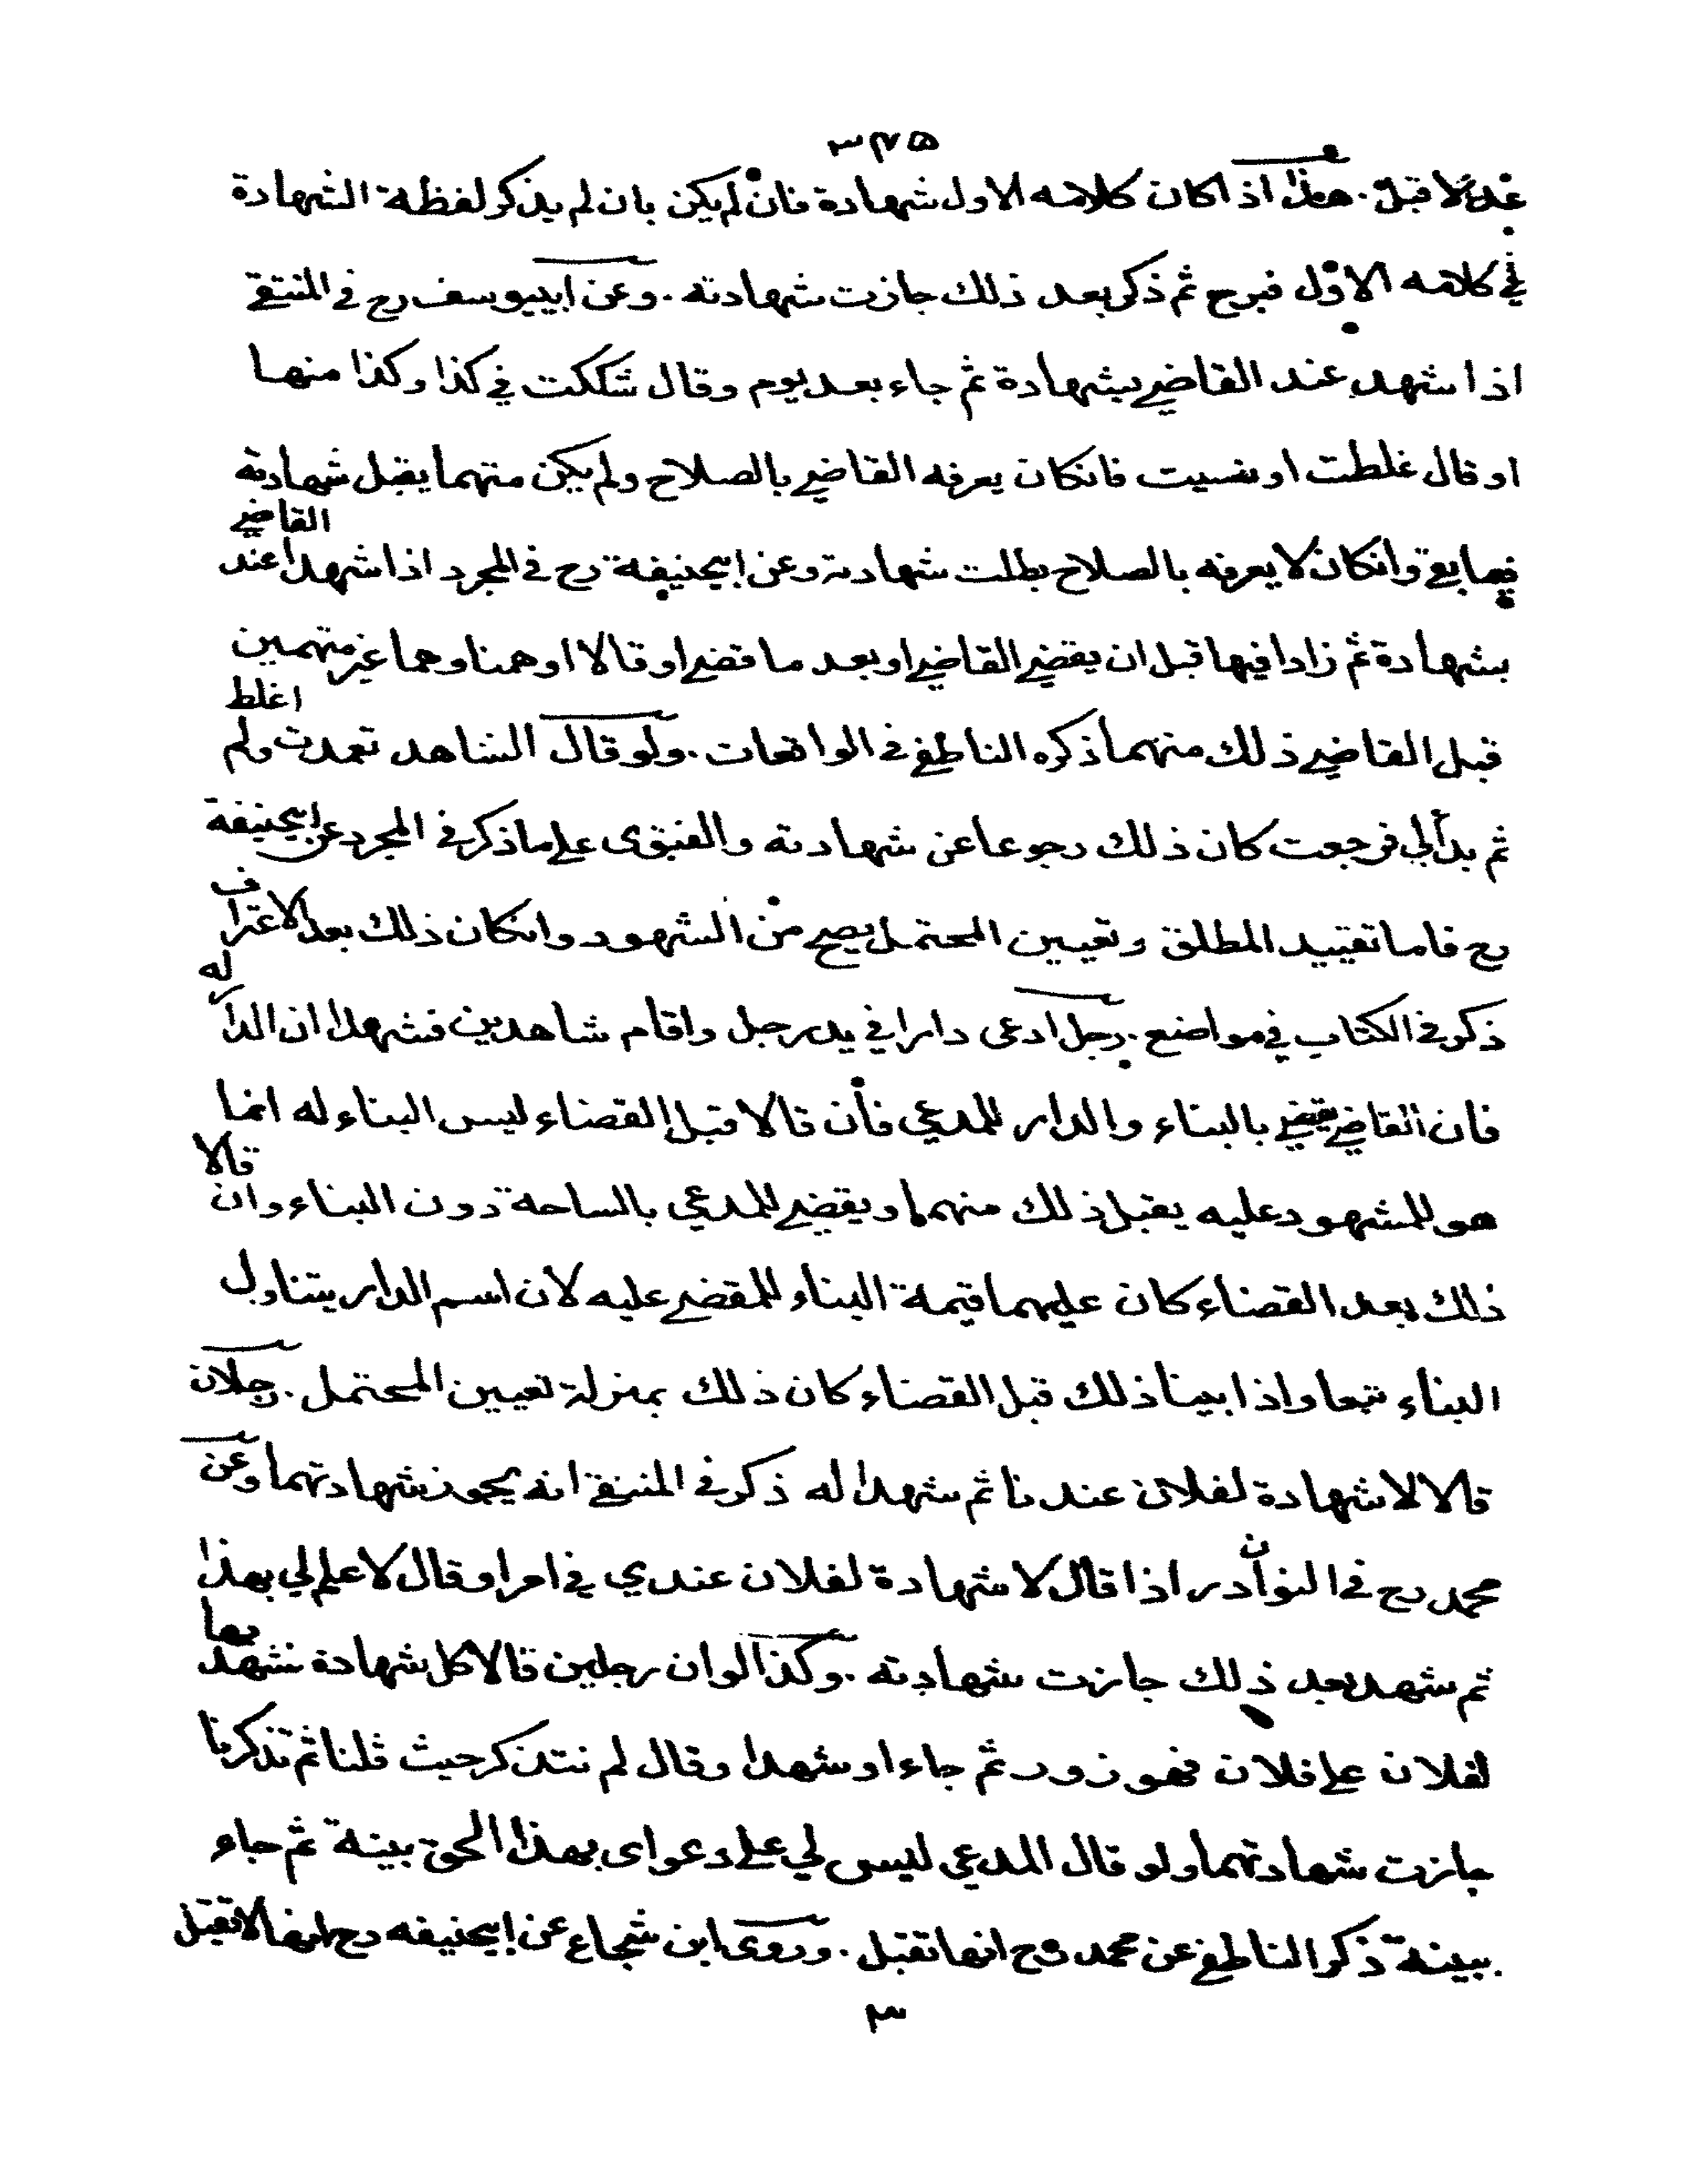 ٣٢٥
عدلا قبل. هذا اذا كان كلامه الاول شهادة فان لم يكن بان لم يذكر لفظة الشهادة
في كلامه الاول فبرح ثم ذكر بعد ذلك جازت شهادته. وعن ابييوسف رح في المنتقى
اذا شهد عند القاضي بشهادة ثم جاء بعد يوم وقال شككت في كذا وكذا منها
او قال غلطت او نسيت فانكان يعرفه القاضي بالصلاح ولم يكن متهما يقبل شهادته
فيما بقي وانكان لا يعرفه بالصلاح بطلت شهادته وعن ابيحنيفة رح في المجرد اذا شهدا عند القاضي
بشهادة ثم زادا فيها قبل ان يقضي القاضي او بعد ما قضى او قالا اوهمنا وهما غير متهمين
قبل القاضي ذلك منهما ذكره الناطفي في الواقعات. ولو قال الشاهد تعمدت ولم اغلط
ثم بدألي فرجعت كان ذلك رجوعا عن شهادته والفتوى على ما ذكر في المجرد عن ابيحنيفة
رح فاما تقييد المطلق وتعيين المحتمل يصح من الشهود وانكان ذلك بعد الاعتراف
ذكر في الكتاب في مواضع. رجل ادعى دارا في يد رجل واقام شاهدين فشهدا ان الدار له
فان القاضي يقضي بالبناء والدار للمدعي فأن قالا قبل القضاء ليس البناء له انما
هو للمشهود عليه يقبل ذلك منهما ويقضي للمدعي بالساحة دون البناء وان قالا
ذلك بعد القضاء كان عليهما قيمة البناء للمقضي عليه لأن اسم الدار يتناول
البناء تبعا واذا بينا ذلك قبل القضاء كان ذلك بمنزلة تعيين المحتمل. رجلان
قالا لا شهادة لفلان عندنا ثم شهدا له ذكر في المنتقى انه يجوز شهادتهما وعن
محمد رح في النوادر اذا قال لا شهادة لفلان عندي في امر او قال لا علم لي بهذا
ثم شهد بعد ذلك جازت شهادته. وكذا لو ان رجلين قالا كل شهادة نشهد بها
لفلان على فلان فهو زور ثم جاءا وشهدا وقال لم نتذكر حيث قلنا ثم تذكرنا
جازت شهادتهما ولو قال المدعي ليس لي على دعواى بهذا الحق بينة ثم جاء
ببينة ذكر الناطفي عن محمد رح انها تقبل. وروى ابن شجاع عن ابيحنيفه رح انها لا تقبل
٣